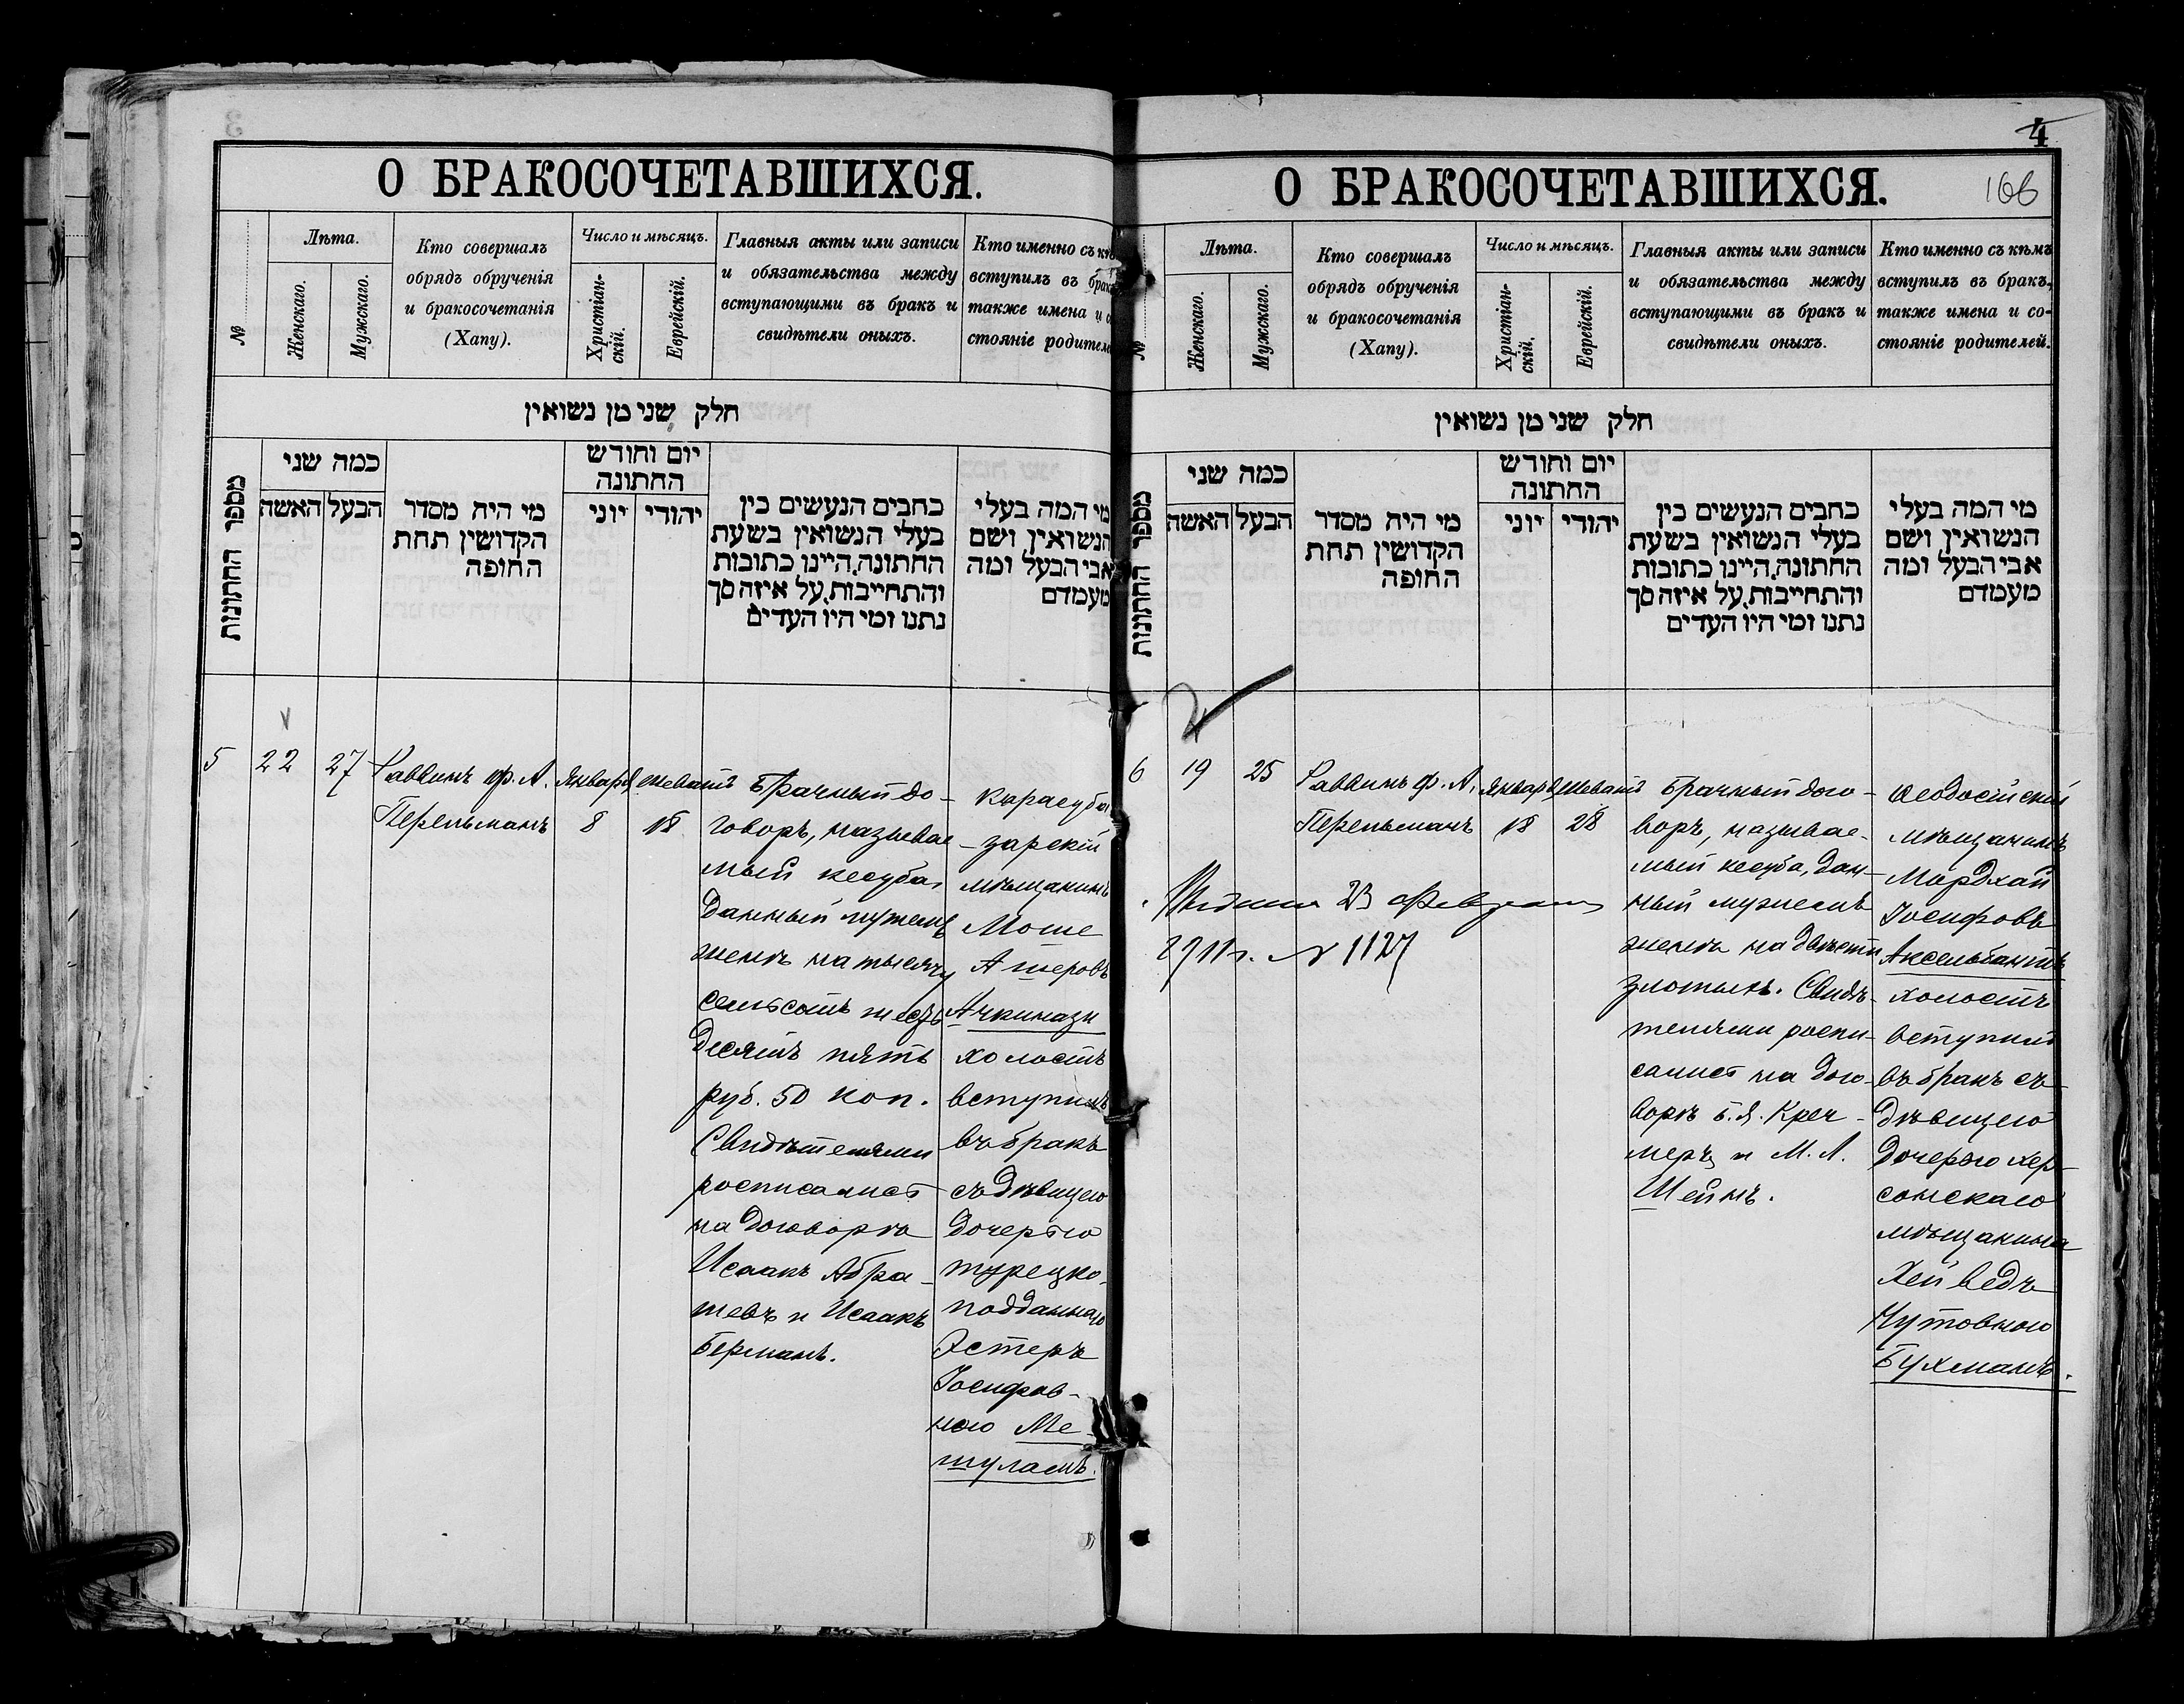 О БРАКОСОЧЕТАВШИХСЯ.
№
Лѣта.
Женскаго.
Мужскаго.
Кто совершалъ
обрядъ обрученія
и бракосочетанія
(Хапу).
Число и мѣсяцъ.
Христіан-
скій.
Еврейскій.
Главныя акты или записи
и обязательства между
вступающими въ бракъ и
свидѣтели оныхъ.
Кто именно съ
вступилъ въ
также имена и
стояніе
חלק שני מן נשואין
מספר החתונות
כמה שני
האשה
הבעל
מי היה מסדר
הקדושין תחת
החופה
יום וחודש
החתונה
יוני
יהודי
כתבים הנעשים בין
בעלי הנשואין בשעת
החתונה, היינו כתובות
והתחייבות, על איזה סך
נתנו ומי היו העדים
מי המה בעלי
הנשואין ושם
אבי הבעל ומה
מעמדם
5
22
27
Раввинъ Ф. А.
Перельманъ
Января
8
Шеватъ
18
Брачный до-
говоръ, называе-
мый кесуба,
данный мужемъ
женѣ на тысячу
семьсотъ шесть
десятъ пять
руб. 50 коп.
Свидѣтелями
росписались
на договорѣ
Исаакъ Абра-
шевъ и Исаакъ
Берманъ.
Карасуба
зарскій
мѣщанинъ
Моше
Ашеровъ
Ачкинази
холостъ
вступилъ
въ бракъ
съ дѣвицею
дочерью
турецко-
подданнаго
Эстеръ
Іосифов-
ною Ме-
шуламъ.
4
О БРАКОСОЧЕТАВШИХСЯ.
166
№
Лѣта.
Женскаго.
Мужскаго.
Кто совершалъ
обрядъ обрученія
и бракосочетанія
(Хапу).
Число и мѣсяцъ.
Христіан-
скій.
Еврейскій.
Главныя акты или записи
и обязательства между
вступающими въ бракъ и
свидѣтели оныхъ.
Кто именно съ кѣмъ
вступилъ въ бракъ,
также имена и со-
стояніе родителей.
חלק שני מן נשואין
מספר החתונות
כמה שני
האשה
הבעל
מי היה מסדר
הקדושין תחת
החופה
יום וחודש
החתונה
יוני
יהודי
כתבים הנעשים בין
בעלי הנשואין בשעת
החתונה, היינו כתובות
והתחייבות, על איזה סך
נתנו ומי היו העדים
מי המה בעלי
הנשואין ושם
אבי הבעל ומה
מעמדם
6
19
25
Раввинъ Ф. А.
Перельманъ
Января
18
Шеватъ
28
Брачный дого-
воръ, называе-
мый кесуба, дан-
ный мужемъ
женѣ на двѣсти
злотыхъ. Свидѣ-
телями роспи-
сались на дого-
ворѣ Б. Я. Креч-
меръ и М. Л.
Шейнъ.
Ѳеодосійскій
мѣщанинъ
Мордхай
Іосифовъ
Аксельбантъ
холостъ
вступилъ
въ бракъ съ
дѣвицею
дочерью хер-
сонскаго
мѣщанина
Хей ведъ
Нутовною
Бухманъ.
23 Февраля
1911 г. № 1127